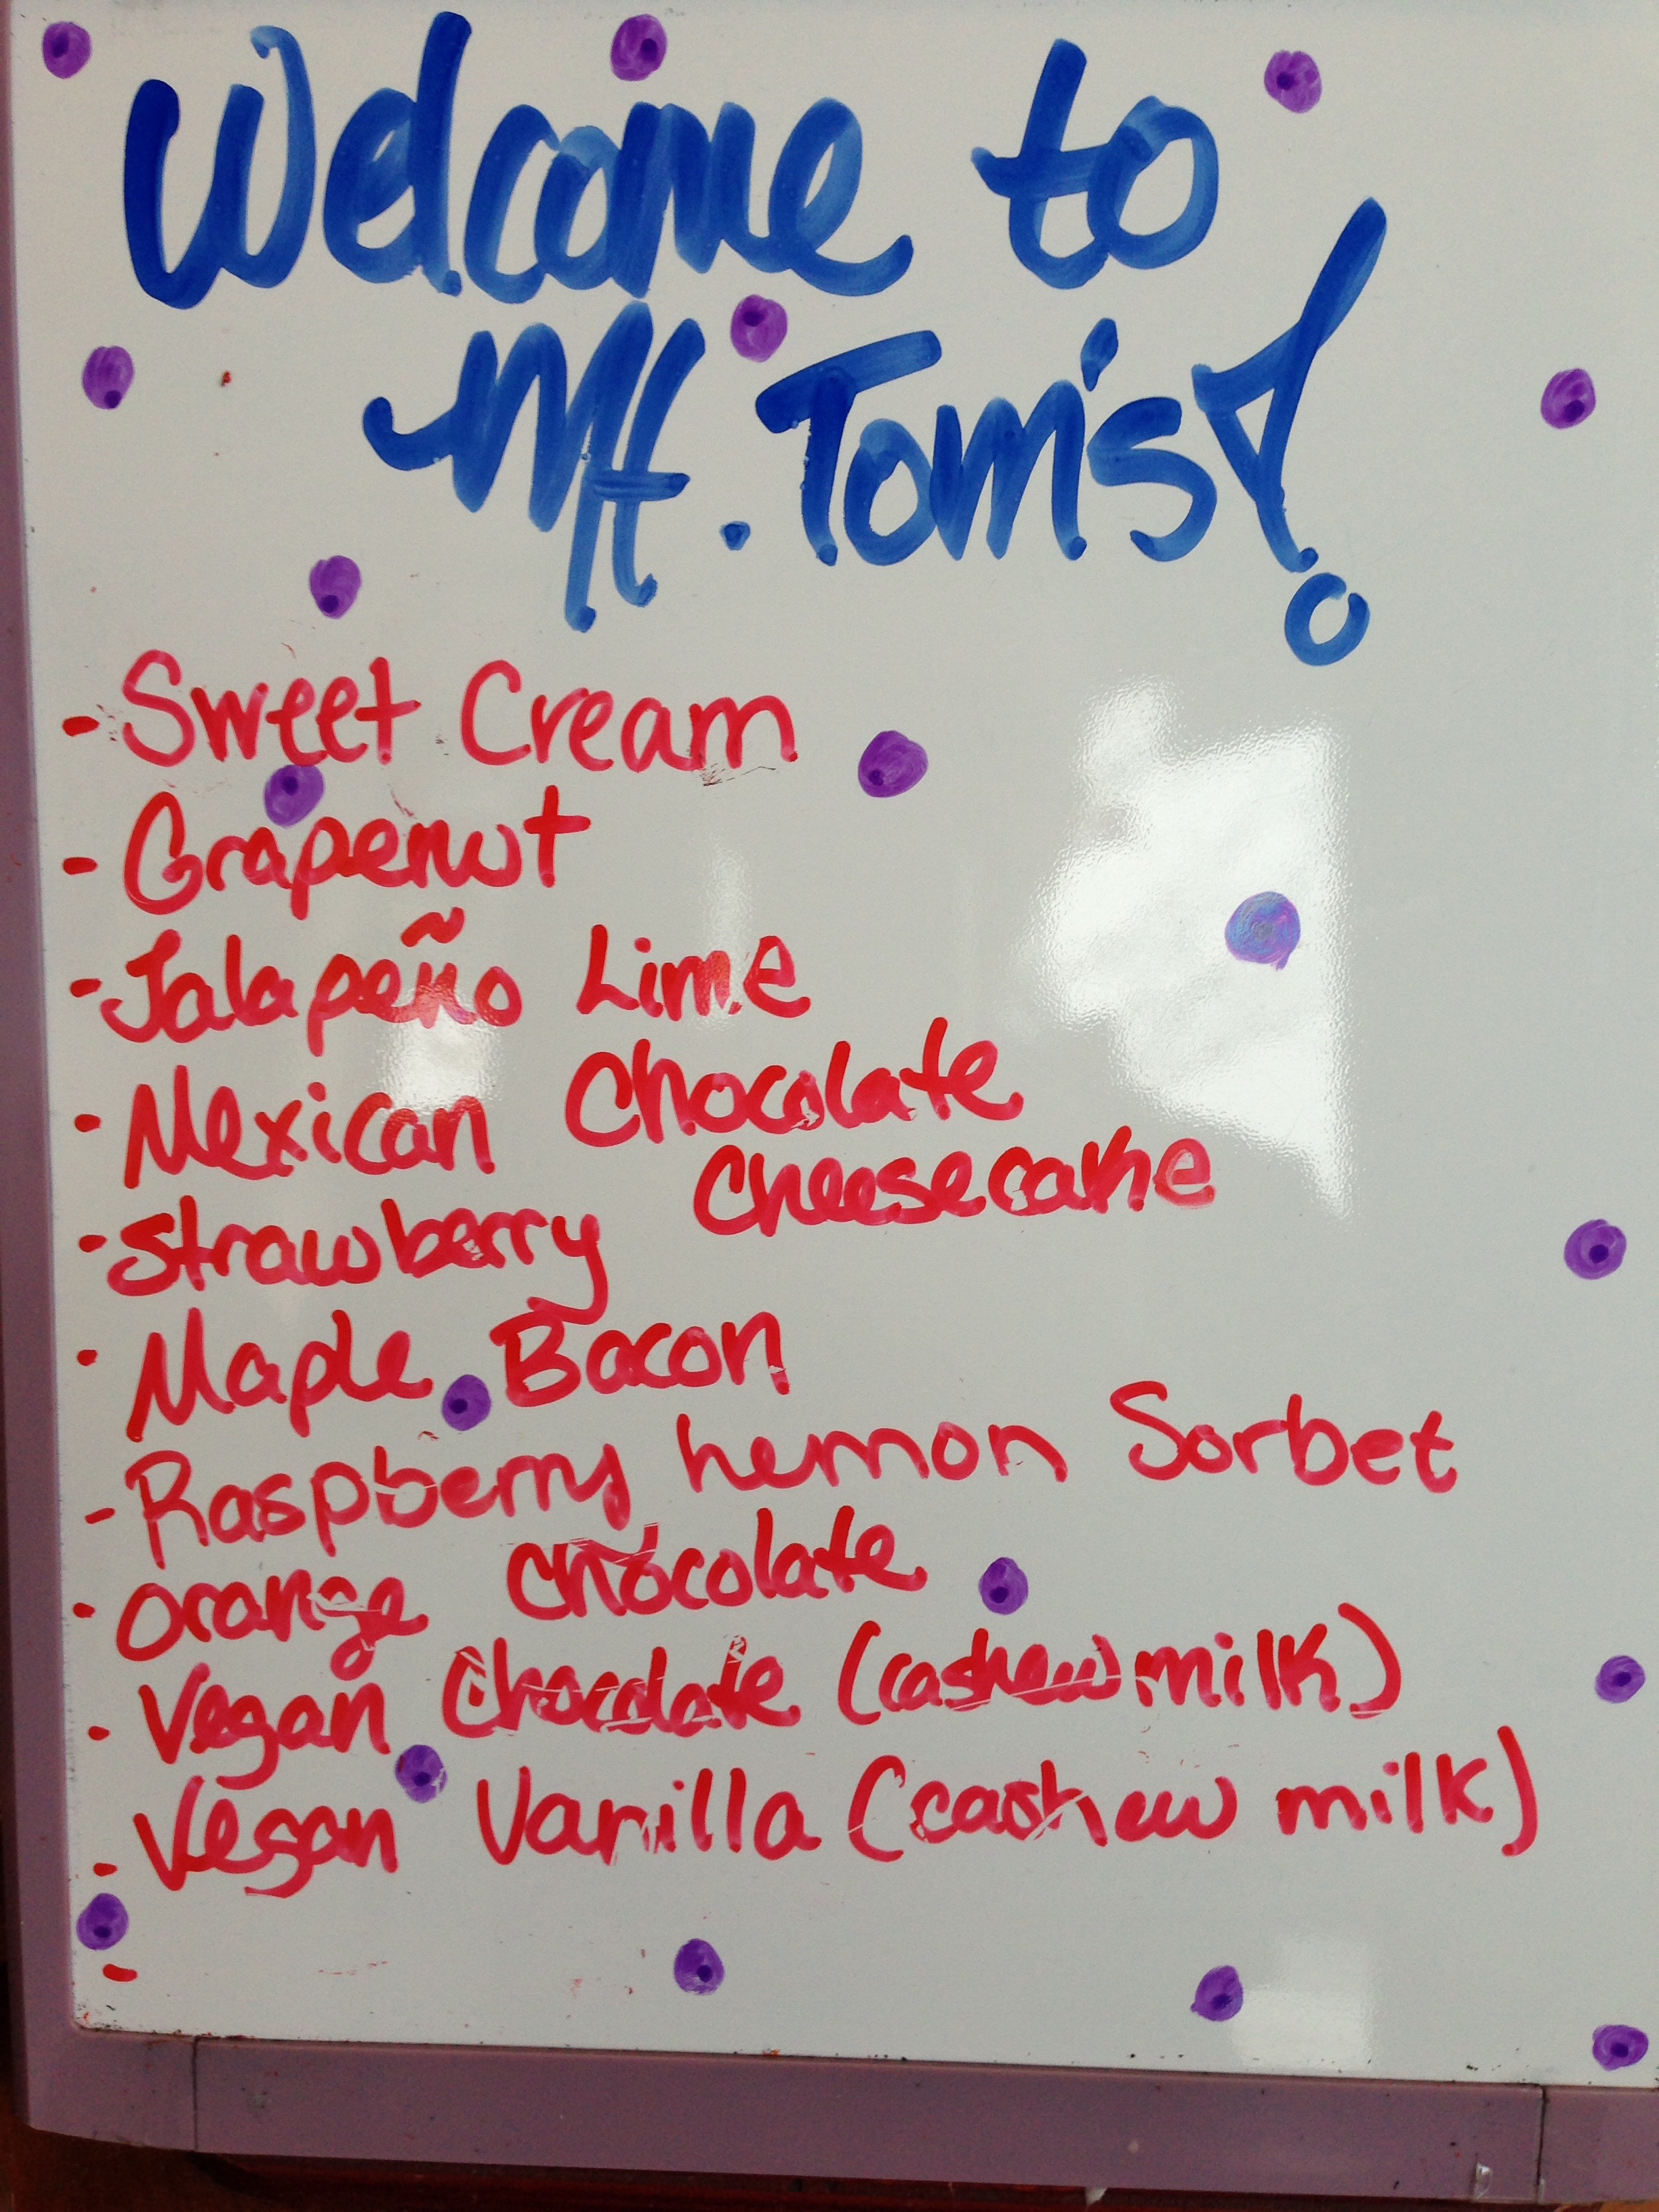 Welcome to
Mt. Tom's!
- Sweet Cream
- Grapenut
- Jalapeño Lime
- Mexican Chocolate
Cheesecake
- Strawberry
- Maple Bacon
- Raspberry Lemon Sorbet
- Orange Chocolate
- Vegan Chocolate (cashew milk)
- Vegan Vanilla (cashew milk)
-